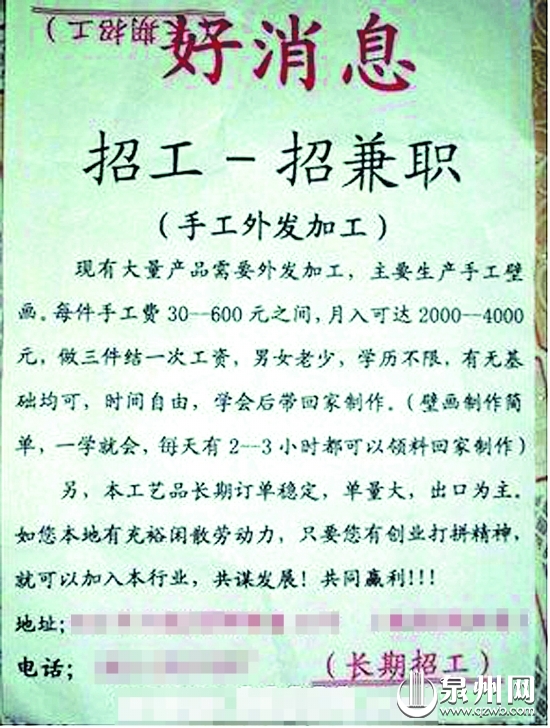 （长期招工）
好消息
招工－招兼职
（手工外发加工）
现有大量产品需要外发加工，主要生产手工壁
画。每件手工费 30--600 元之间，月入可达 2000--4000
元，做三件结一次工资，男女老少，学历不限，有无基
础均可，时间自由，学会后带回家制作。（壁画制作简
单，一学就会，每天有 2--3 小时都可以领料回家制作）
另，本工艺品长期订单稳定，单量大，出口为主。
如您本地有充裕闲散劳动力，只要您有创业打拼精神，
就可以加入本行业，共谋发展！共同赢利!!!
地址；
电话；
（长期招工）
泉州网
www.qzwb.com